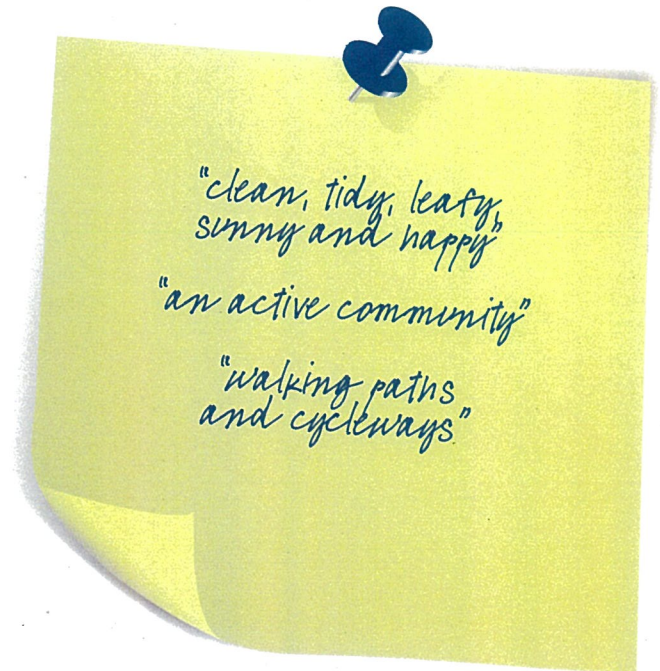 "clean, tidy, leafy,
sunny and happy"
"an active community"
"walking paths
and cycleways"